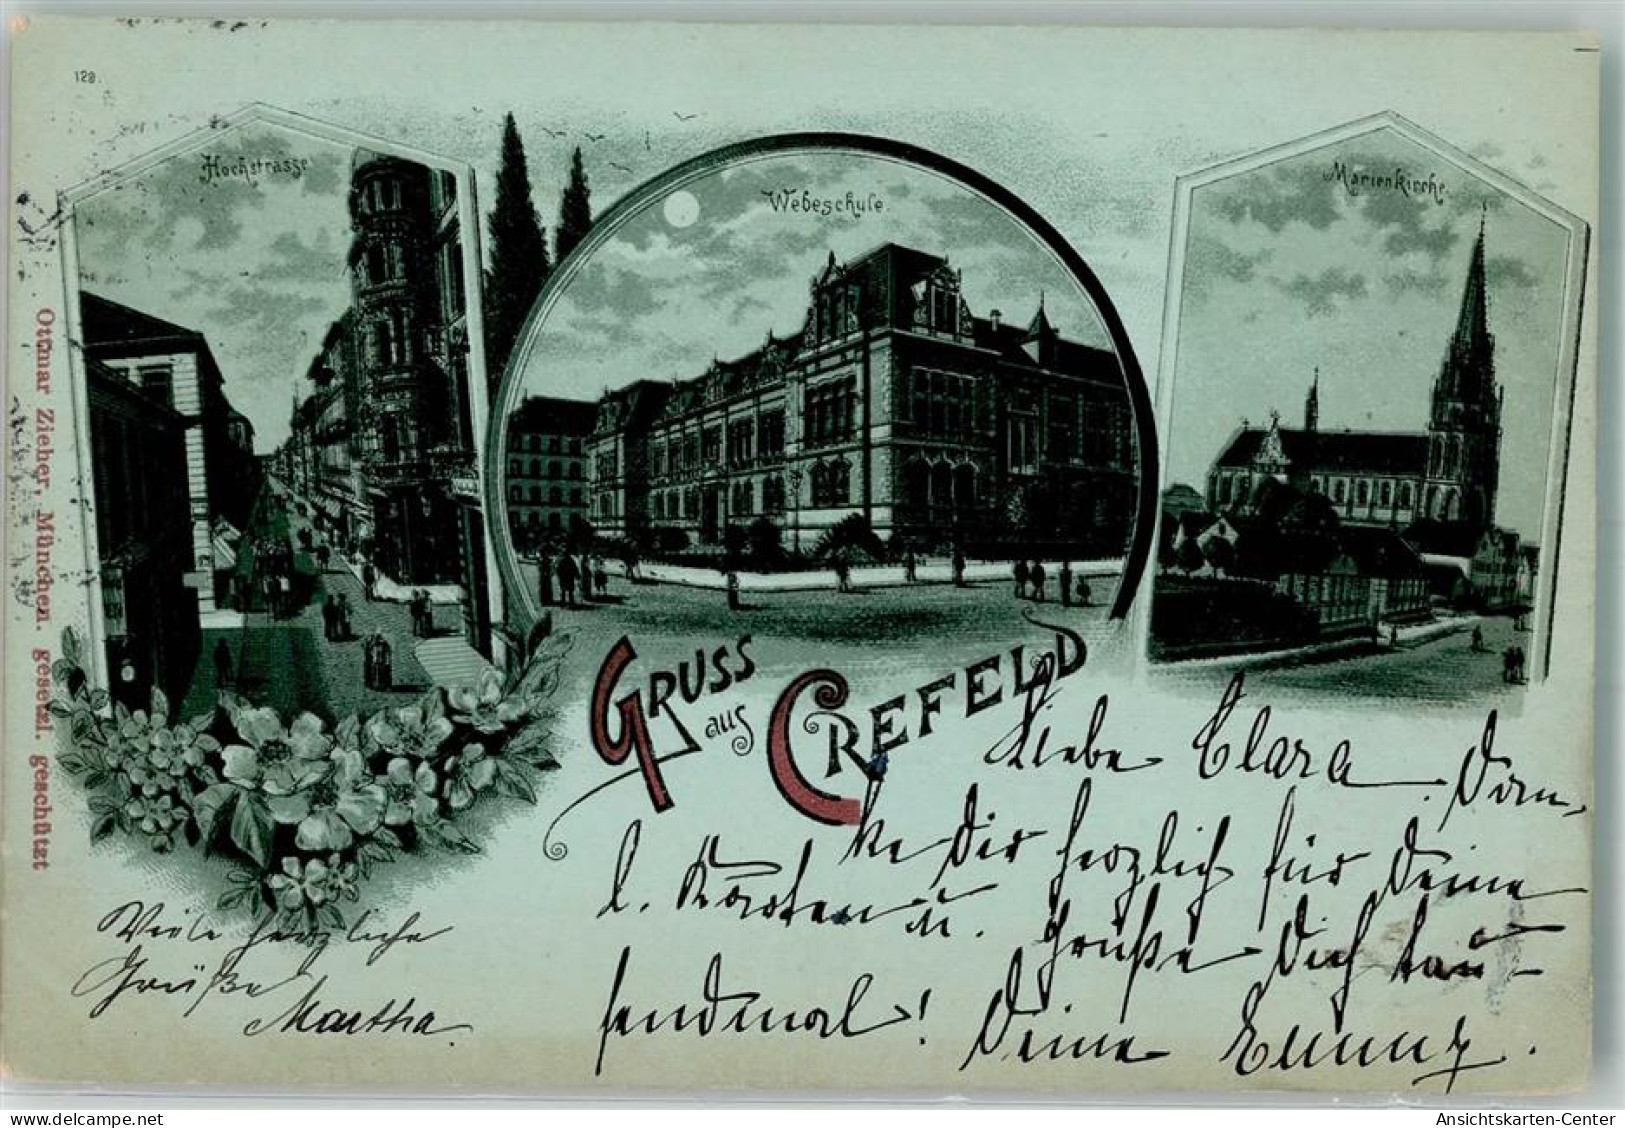 128.
Hochstrasse
Webeschule.
Marienkirche.
Ottmar Zieher, München. gesetzl. geschützt
GRUSS
aus
CREFELD
Liebe Clara. Dan-
ke Dir herzlich für Deine
l. Karten u. Grüße Dich tau-
sendmal! Deine Emmy.
Viele herzliche
Grüße
Martha.
Ansichtskarten-Center